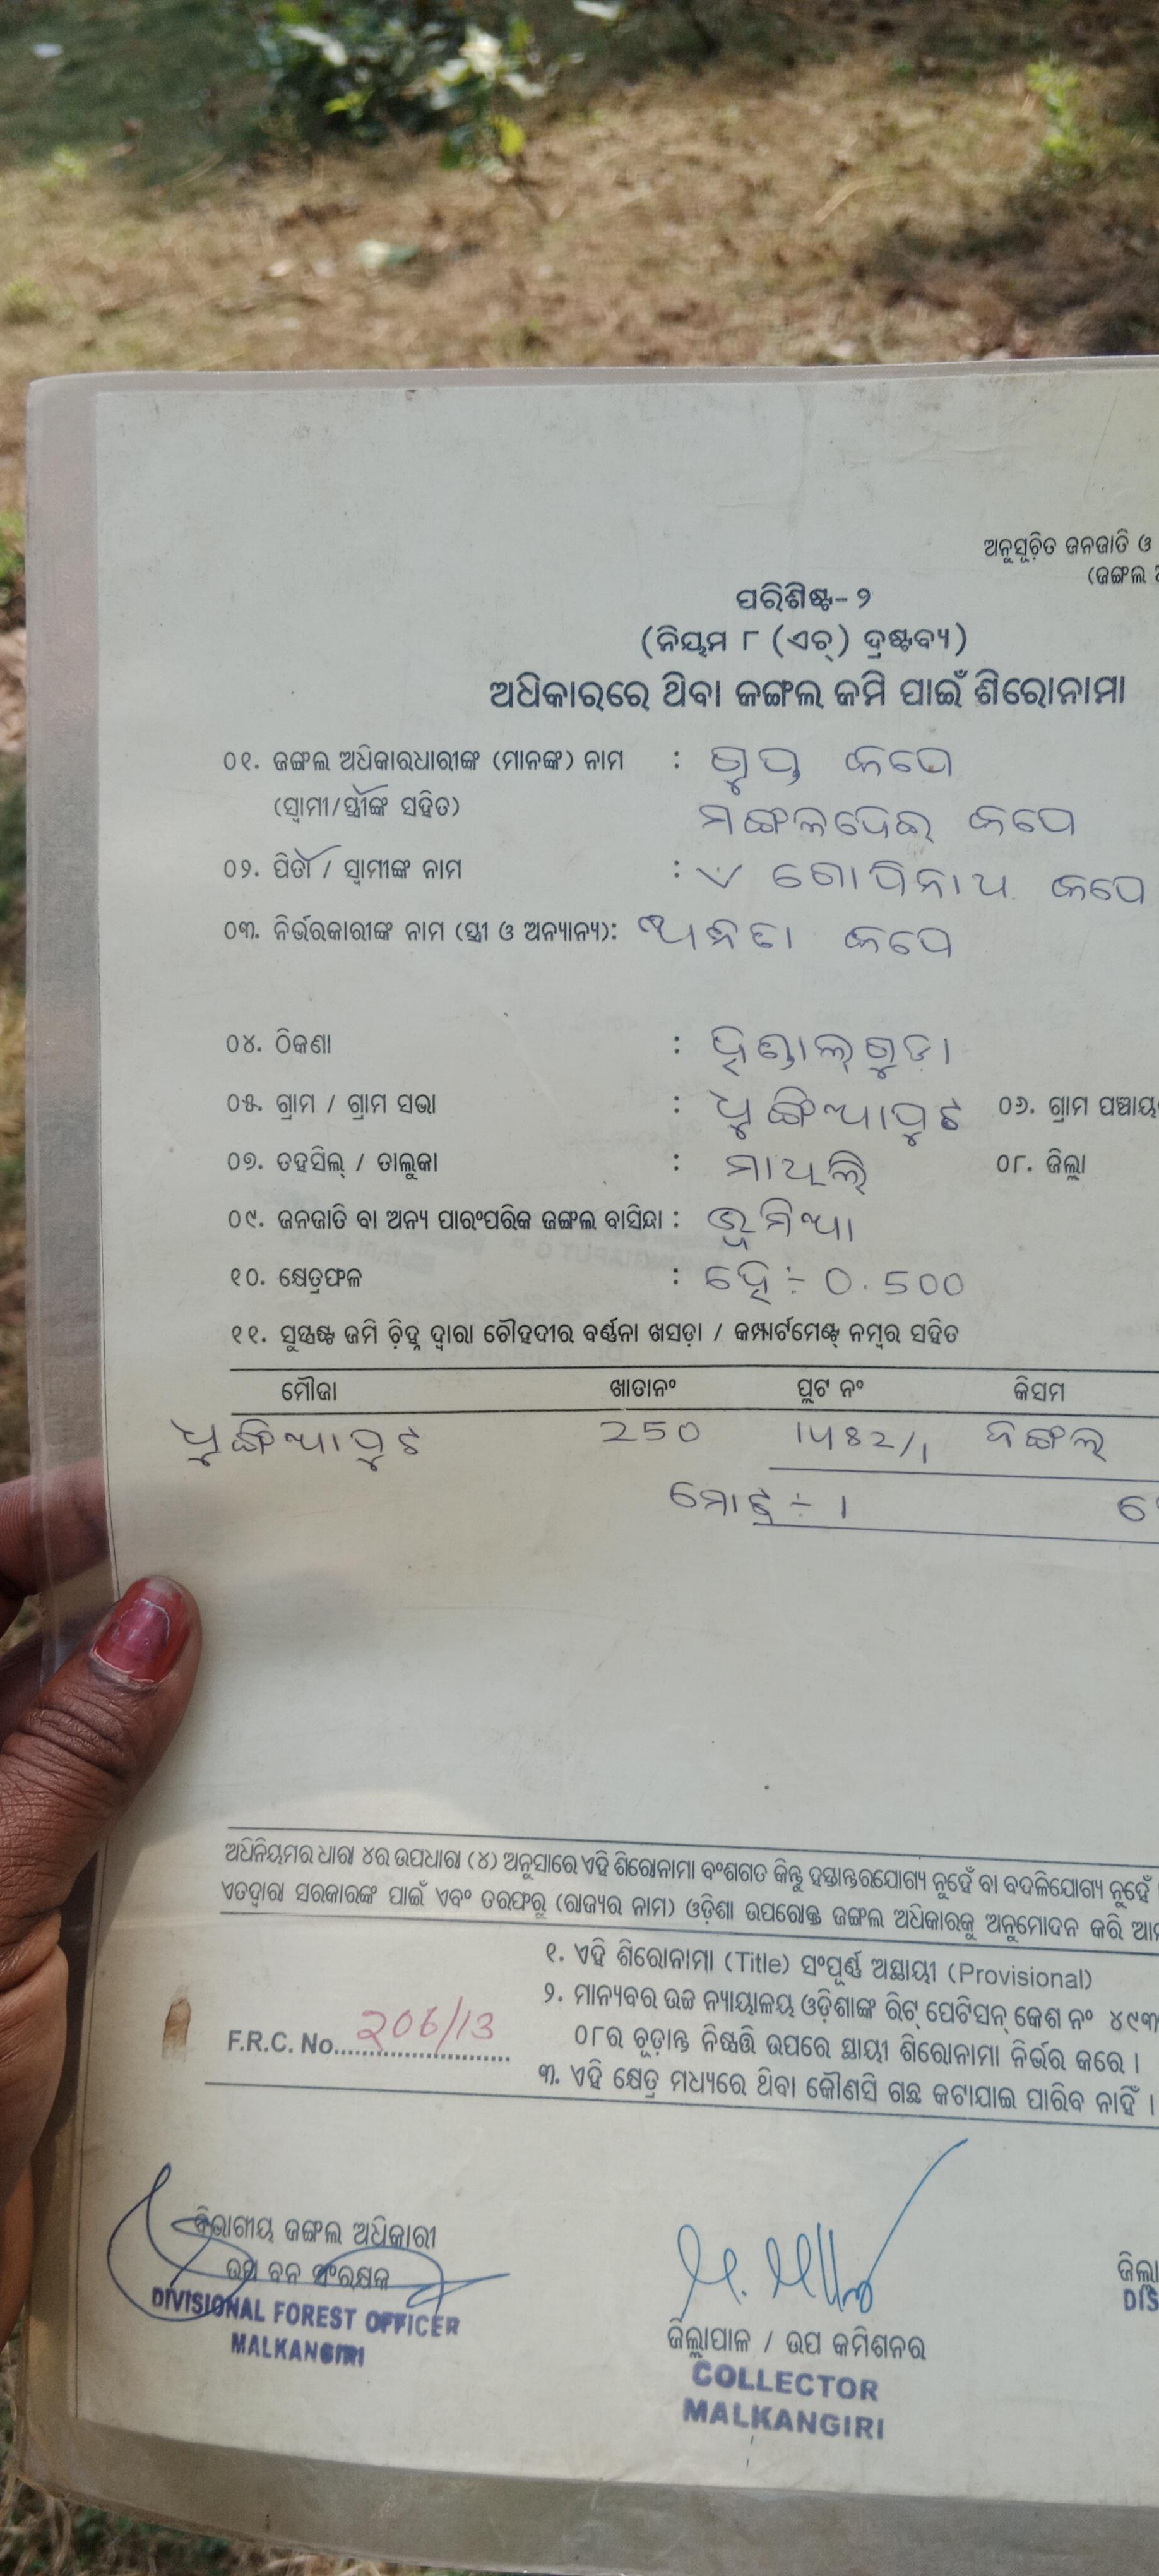 ଅନୁସୂଚିତ ଜନଜାତି ଓ
(ଜଙ୍ଗଲ
ପରିଶିଷ୍ଟ- ୨
(ନିୟମ ୮ (ଏଚ୍) ଦ୍ରଷ୍ଟବ୍ୟ)
ଅଧିକାରରେ ଥିବା ଜଙ୍ଗଲ ଜମି ପାଇଁ ଶିରୋନାମା
୦୧. ଜଙ୍ଗଲ ଅଧିକାରଧାରୀଙ୍କ (ମାନଙ୍କ) ନାମ :
(ସ୍ୱାମୀ/ସ୍ତ୍ରୀଙ୍କ ସହିତ)
୦୨. ପିତା / ସ୍ୱାମୀଙ୍କ ନାମ : ଗୋପିନାଥ
୦୩. ନିର୍ଭରକାରୀଙ୍କ ନାମ (ସ୍ତ୍ରୀ ଓ ଅନ୍ୟାନ୍ୟ):
୦୪. ଠିକଣା :
୦୫. ଗ୍ରାମ / ଗ୍ରାମ ସଭା : ଧୁଙ୍ଗିଆପୁଟ ୦୬. ଗ୍ରାମ
୦୭. ତହସିଲ୍ / ତାଲୁକା : ମାଥିଲି ୦୮. ଜିଲ୍ଲା
୦୯. ଜନଜାତି ବା ଅନ୍ୟ ପାରଂପରିକ ଜଙ୍ଗଲ ବାସିନ୍ଦା : ଭୂମିଆ
୧୦. କ୍ଷେତ୍ରଫଳ : ହେ÷ 0.500
୧୧. ସୁସ୍ପଷ୍ଟ ଜମି ଚିହ୍ନ ଦ୍ୱାରା ଚୌହଦୀର ବର୍ଣ୍ଣନା ଖସଡ଼ା / କମ୍ପାର୍ଟମେଣ୍ଟ ନମ୍ବର ସହିତ
ମୌଜା ଖାତାନଂ ପ୍ଲଟ ନଂ କିସମ
ଧୁଙ୍ଗିଆପୁଟ 250 ଜଙ୍ଗଲ୍
ମୋଟ ÷ 1
ଅଧିନିୟମର ଧାରା ୪ର ଉପଧାରା (୪) ଅନୁସାରେ ଏହି ଶିରୋନାମା ବଂଶଗତ କିନ୍ତୁ ହସ୍ତାନ୍ତରଯୋଗ୍ୟ ନୁହେଁ ବା ବଦଳିଯୋଗ୍ୟ ନୁହେଁ
ଏତଦ୍ୱାରା ସରକାରଙ୍କ ପାଇଁ ଏବଂ ତରଫରୁ (ରାଜ୍ୟର ନାମ) ଓଡ଼ିଶା ଉପରୋକ୍ତ ଜଙ୍ଗଲ ଅଧିକାରକୁ ଅନୁମୋଦନ କରି
୧. ଏହି ଶିରୋନାମା (Title) ସଂପୂର୍ଣ୍ଣ ଅସ୍ଥାୟୀ (Provisional)
୨. ମାନ୍ୟବର ଉଚ୍ଚ ନ୍ୟାୟାଳୟ ଓଡ଼ିଶାଙ୍କ ରିଟ୍ ପେଟିସନ୍ କେଶ ନଂ
F.R.C. No. 206/13
୦୮ର ଚୂଡ଼ାନ୍ତ ନିଷ୍ପତ୍ତି ଉପରେ ସ୍ଥାୟୀ ଶିରୋନାମା ନିର୍ଭର କରେ ।
୩. ଏହି କ୍ଷେତ୍ର ମଧ୍ୟରେ ଥିବା କୌଣସି ଗଛ କଟାଯାଇ ପାରିବ ନାହିଁ ।
ବିଭାଗୀୟ ଜଙ୍ଗଲ ଅଧିକାରୀ
ଉପ ବନ ସଂରକ୍ଷକ
DIVISIONAL FOREST OFFICER
MALKANGIRI
ଜିଲ୍ଲାପାଳ / ଉପ କମିଶନର
COLLECTOR
MALKANGIRI
ଜିଲ୍ଲା
DIS